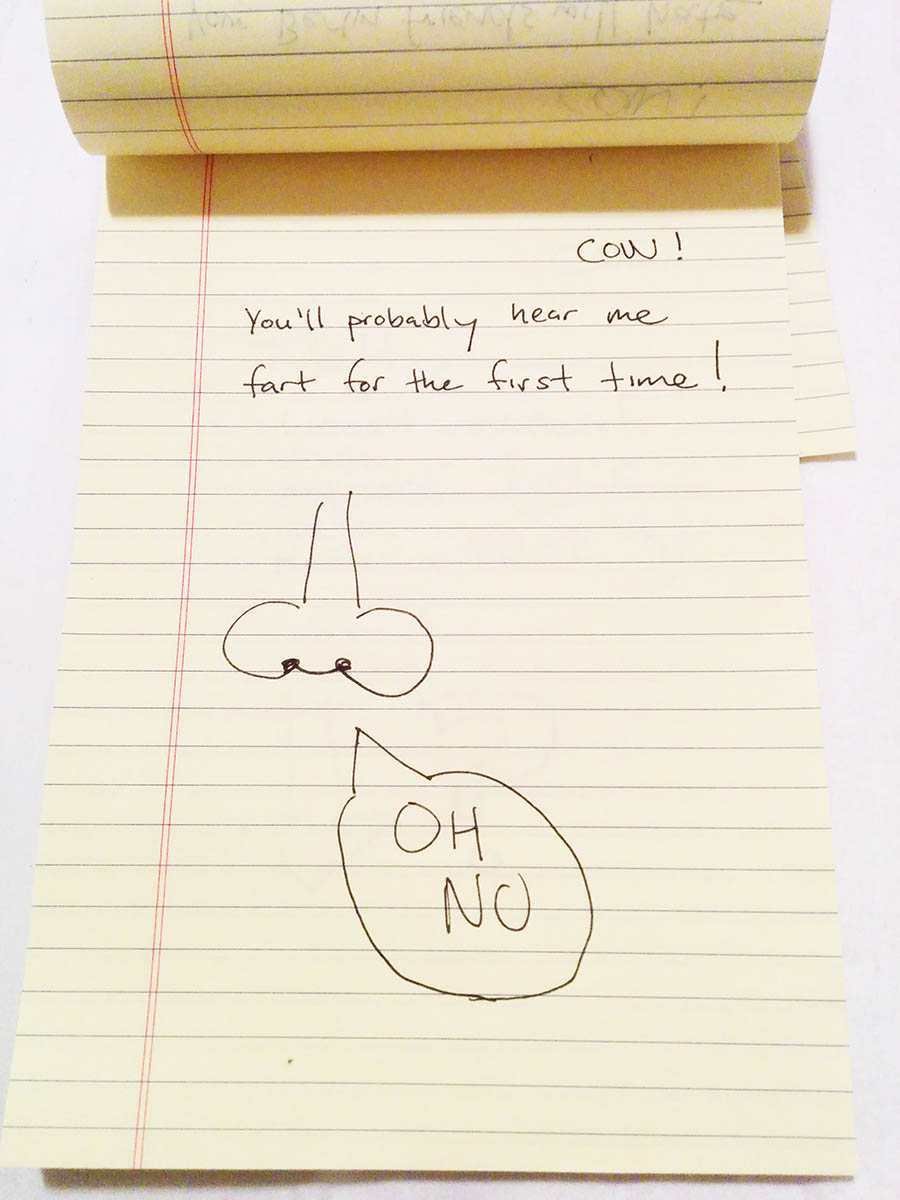 COW!
You'll probably hear me
fart for the first time!
OH
NO